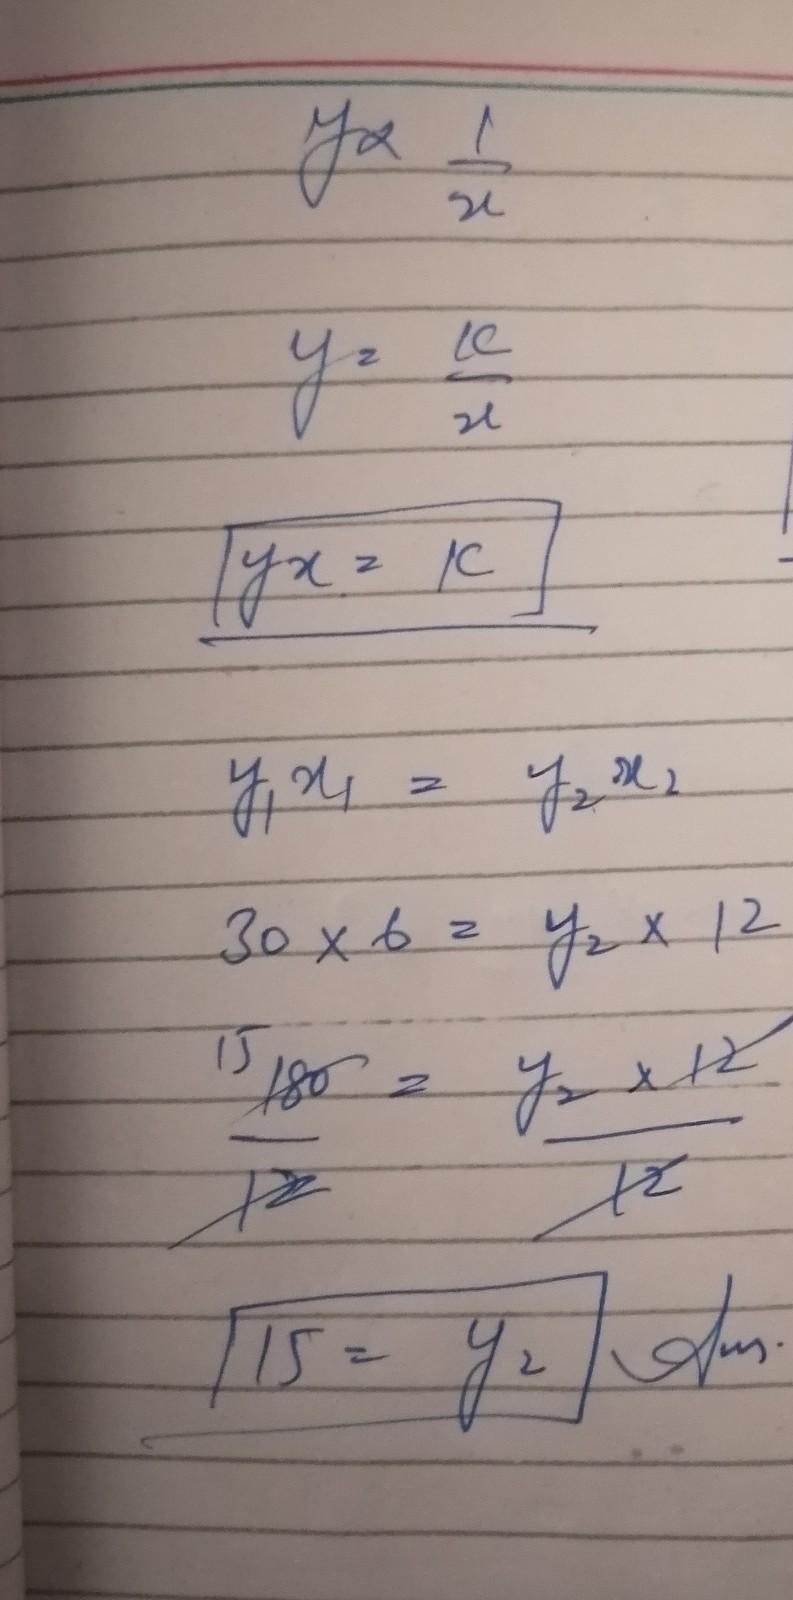 y ∝ 1/x
y = K/x
yx = K
y₁x₁ = y₂x₂
30 × 6 = y₂ × 12
15 180/12 = y₂ × 12/12
15 = y₂ Ans.